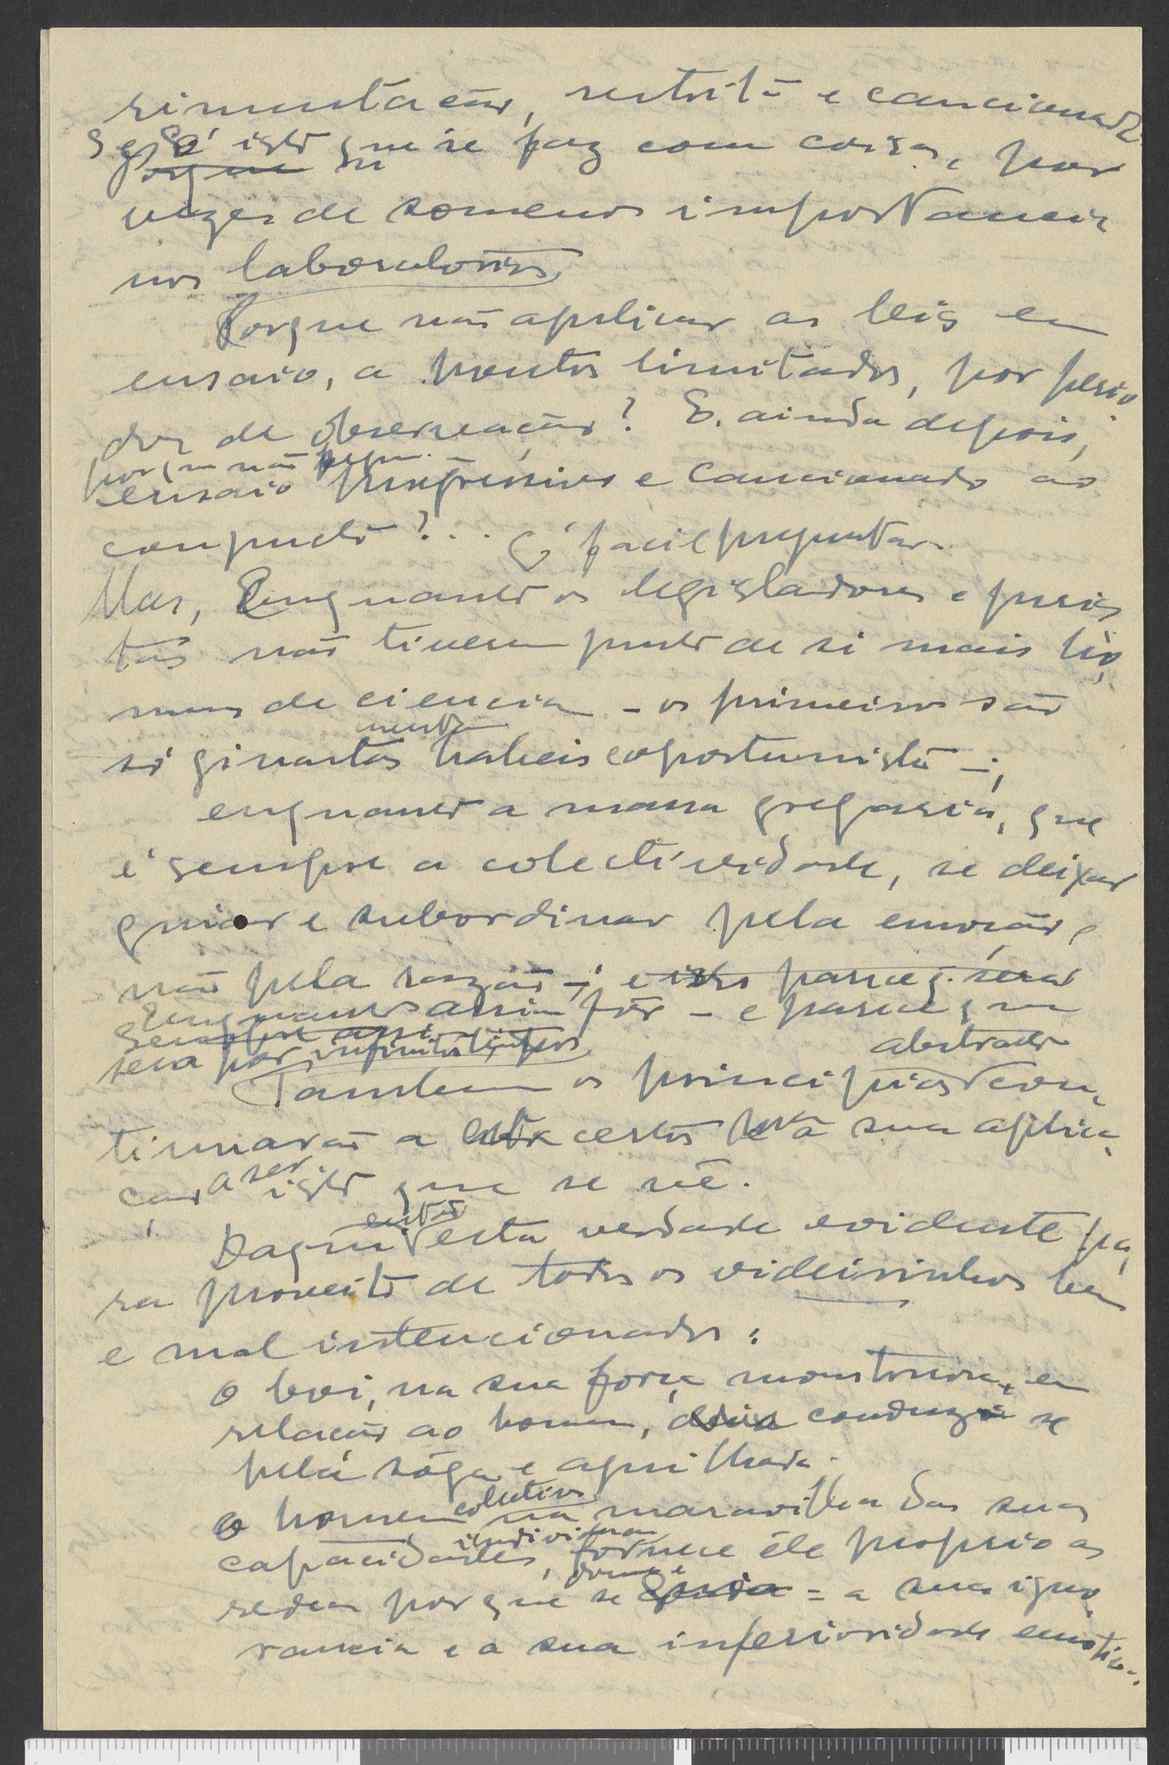 rimentação, restrita e cancionada
se é isto que se faz com coisas, por
vezes de somenos importancia
nos laboratorios,
Porque não aplicar as leis em
ensaio, a pontos limitados, por perio
dos de observação? E. ainda depois,
porque não
ensaio progressivo e cancionado ao
conjuncto?.. É facil preguntar.
Mas, Emquanto os legisladores e juris
tas não tiverem junto de si mais ho,
mens de ciencia - os primeiros são
só ginastas habeis e oportunistas -;
enquanto a massa gregaria, que
é sempre a colectividade, se deixar
guiar e subordinar pela emoção e
não pela razão -; e isso parece será
Emquanto assim fôr - e parece que
sempre assim
será por infinitos tempos,
Tambem os principios abstractos con,
tinuarão a estar certos e a sua aplica,
ção a ser isto que se vê.
Daqui então esta verdade evidente pa,
ra proveito de todos os videirinhos bem
e mal intencionados:
O boi, na sua força monstruosa, em
relação ao homem, conduz se
pela sóga e aguilhada.
O homem colectivo na maravilha das suas
capacidades individuaes, fornece êle proprio as
redeas por que se guia = a sua igno,
rancia e a sua inferioridade emotiva.